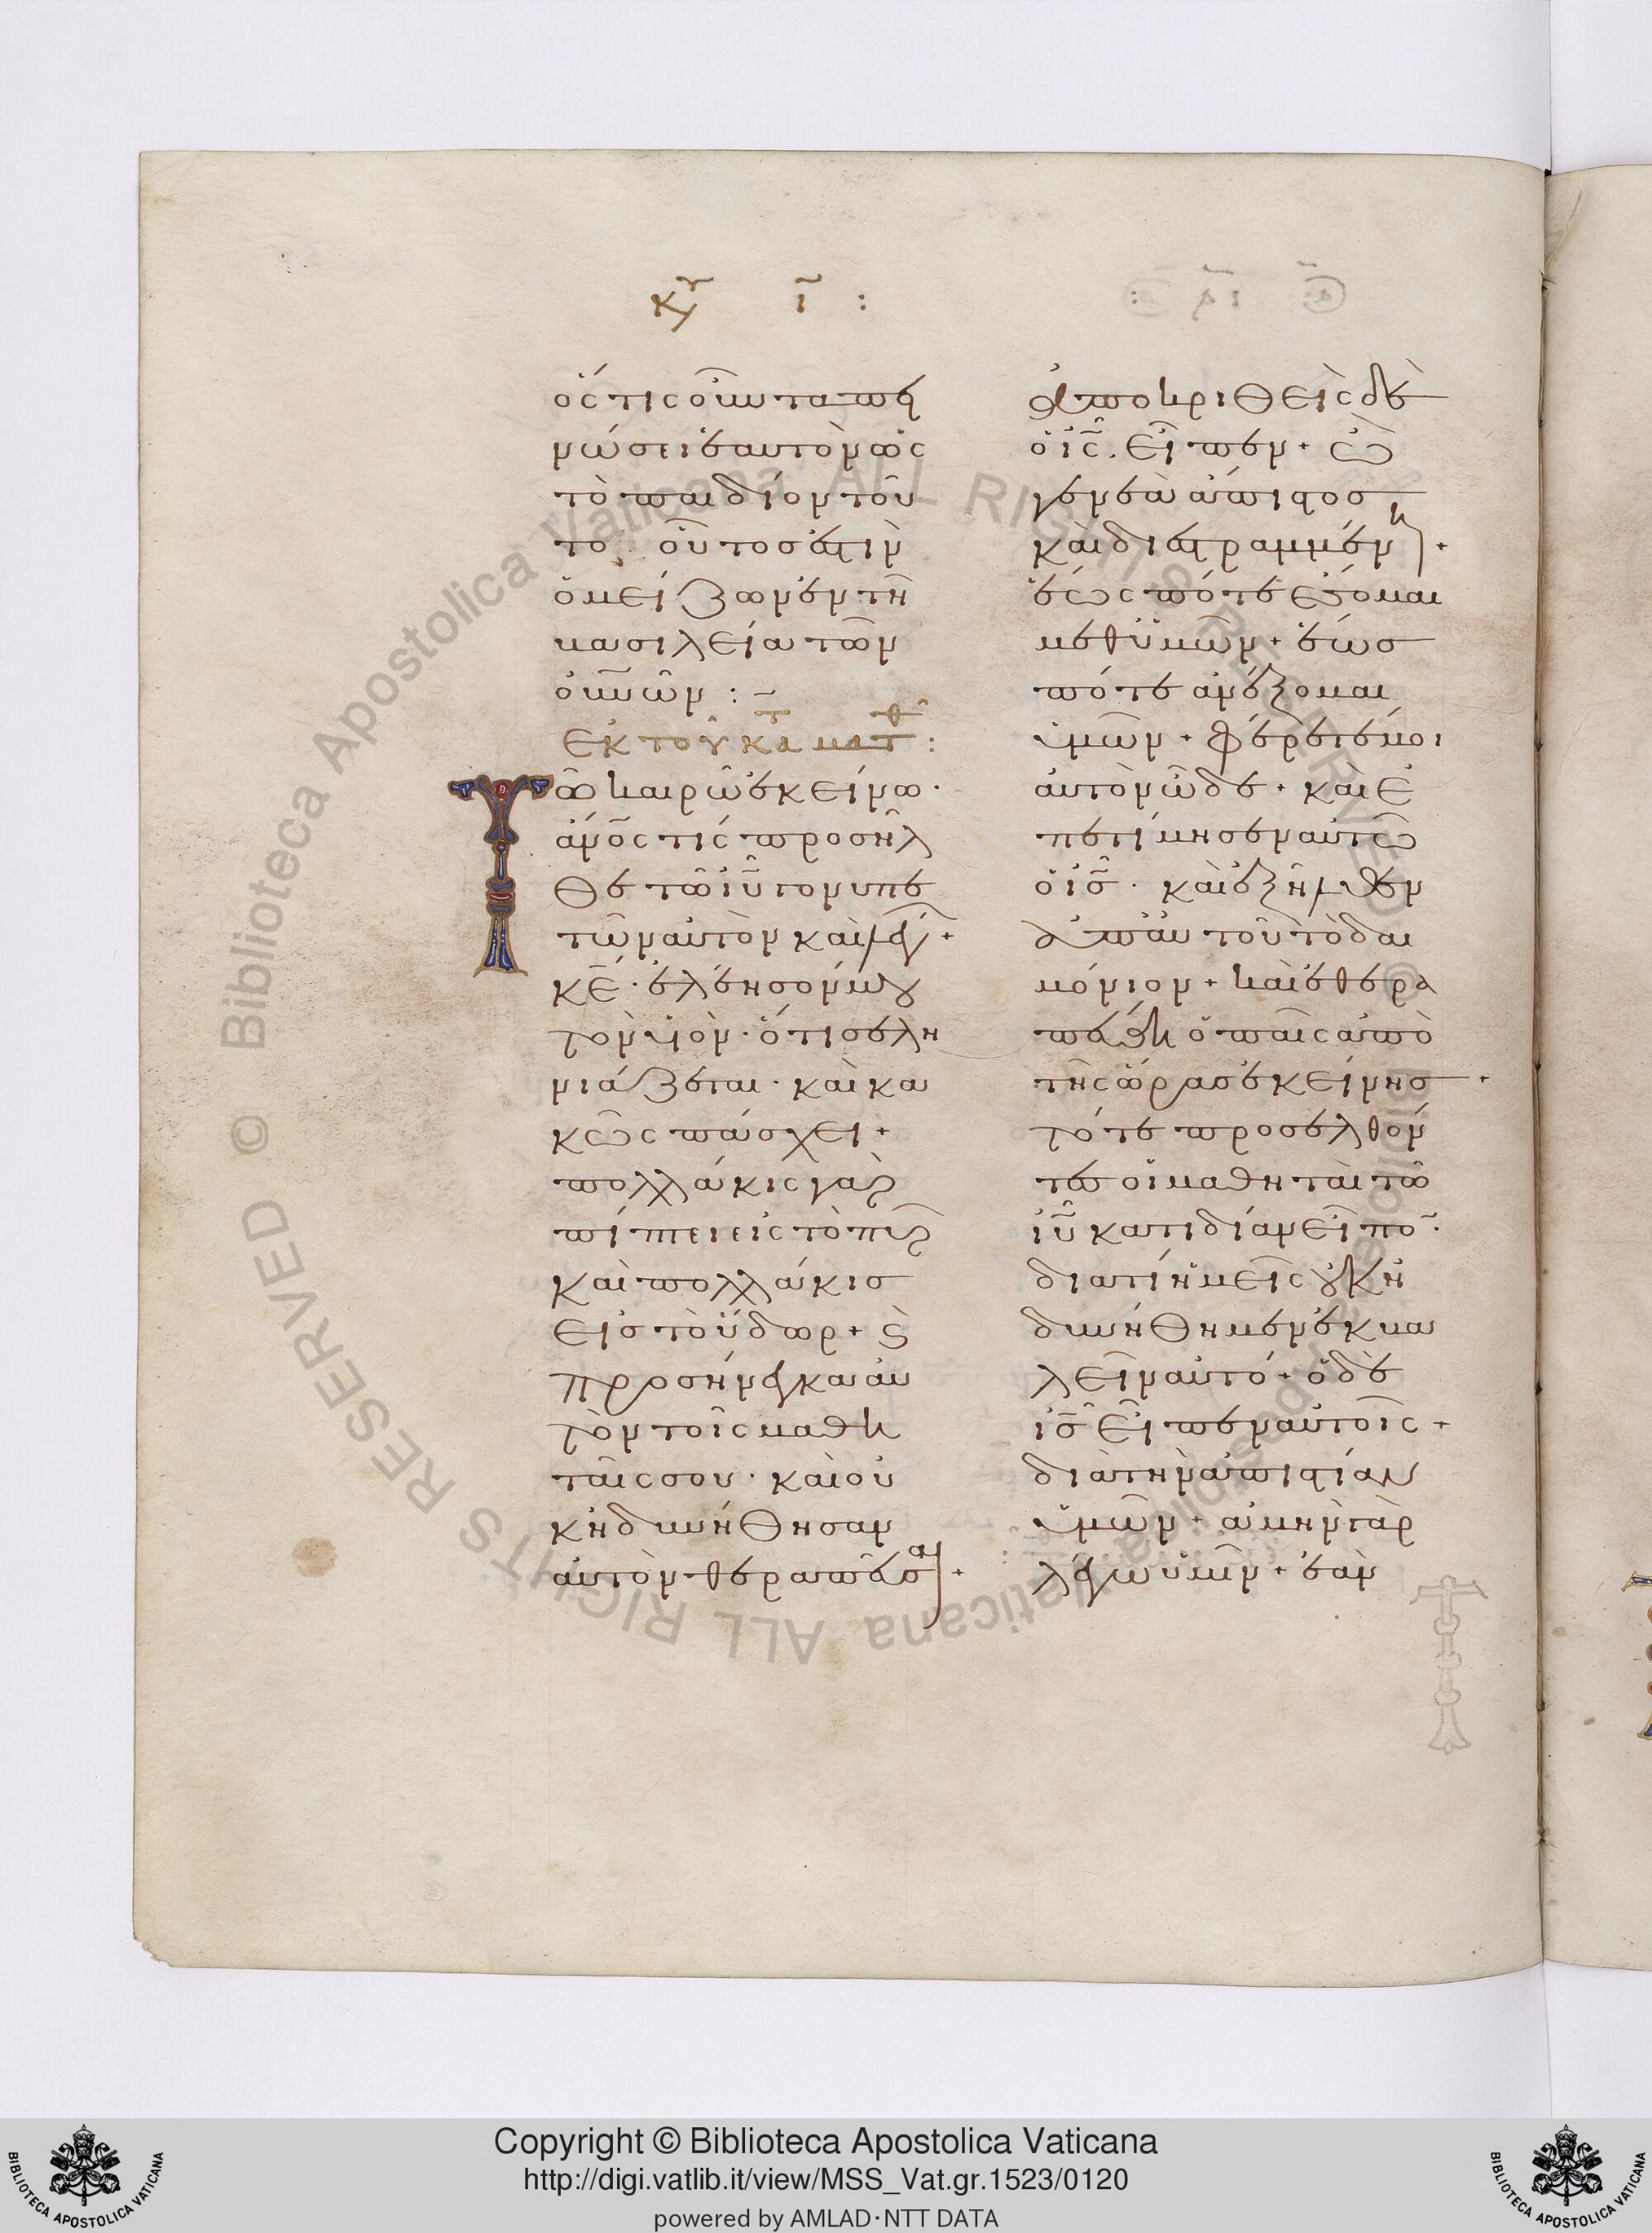 κυ ι :
ὅς τις οὖν ταπει
νώσει ἑαυτὸν ὡς
τὸ παιδίον τοῦ
το οὗτος ἐστιν
ὁ μείζων ἐν τῇ
βασιλεία τῶν
οὐνῶν :
Ἐκ τοῦ κατὰ ματθ :
Τῶ καιρῶ ἐκείνω ·
ἀνός τίς προσῆλ
θε τῶ ιυ γονυπε
τῶν αὐτὸν καὶ λέγ +
κε · ἐλέησον μου
τὸν υἱὸν · ὅτι σελη
νιάζεται · καὶ κα
κῶς πάσχει +
πολλάκις γὰρ
πίπτει εἰς τὸ πυρ
καὶ πολλάκις
εἰς τὸ ὕδωρ + ϛ
προσήνεγκα αὐ
τὸν τοῖς μαθη
ταῖς σου · καὶ οὐ
κ ἠδυνήθησαν
αὐτὸν θεραπεῦσαι +
ἀποκριθεὶς δὲ
ὁ ις. εἶπεν + ὦ
γενεὰ ἄπιστος
καὶ διεστραμμένη +
ἕως πότε ἔσομαι
μεθ ὑμῶν + ἕως
πότε ἀνέξομαι
ὑμῶν + φέρετέ μοι
αὐτὸν ὧδε + καὶ ἐ
πετίμησεν αὐτῶ
ὁ ις · καὶ ἐξῆλθεν
ἀπ αὐτοῦ τὸ δαι
μόνιον + καὶ ἐθερα
πεύθη ὁ παῖς ἀπὸ
τῆς ὥρας ἐκείνης +
τότε προσελθόν
τες οἱ μαθηταὶ τῶ
ιυ κατιδίαν εἶπο
διατί ἡμεῖς οὐκ ἠ
δυνήθημεν ἐκβα
λεῖν αὐτό + ὁ δὲ
ις εἶπεν αὐτοῖς +
διὰ τὴν ἀπιστίαν
ὑμῶν + ἀμὴν γὰρ
λέγω ὑμῖν + ἐὰν
Copyright © Biblioteca Apostolica Vaticana
http://digi.vatlib.it/view/MSS_Vat.gr.1523/0120
powered by AMLAD·NTT DATA
BIBLIOTECA APOSTOLICA VATICANA
BIBLIOTECA APOSTOLICA VATICANA
© Biblioteca Apostolica Vaticana ALL RIGHTS RESERVED
© Biblioteca Apostolica Vaticana ALL RIGHTS RESERVED